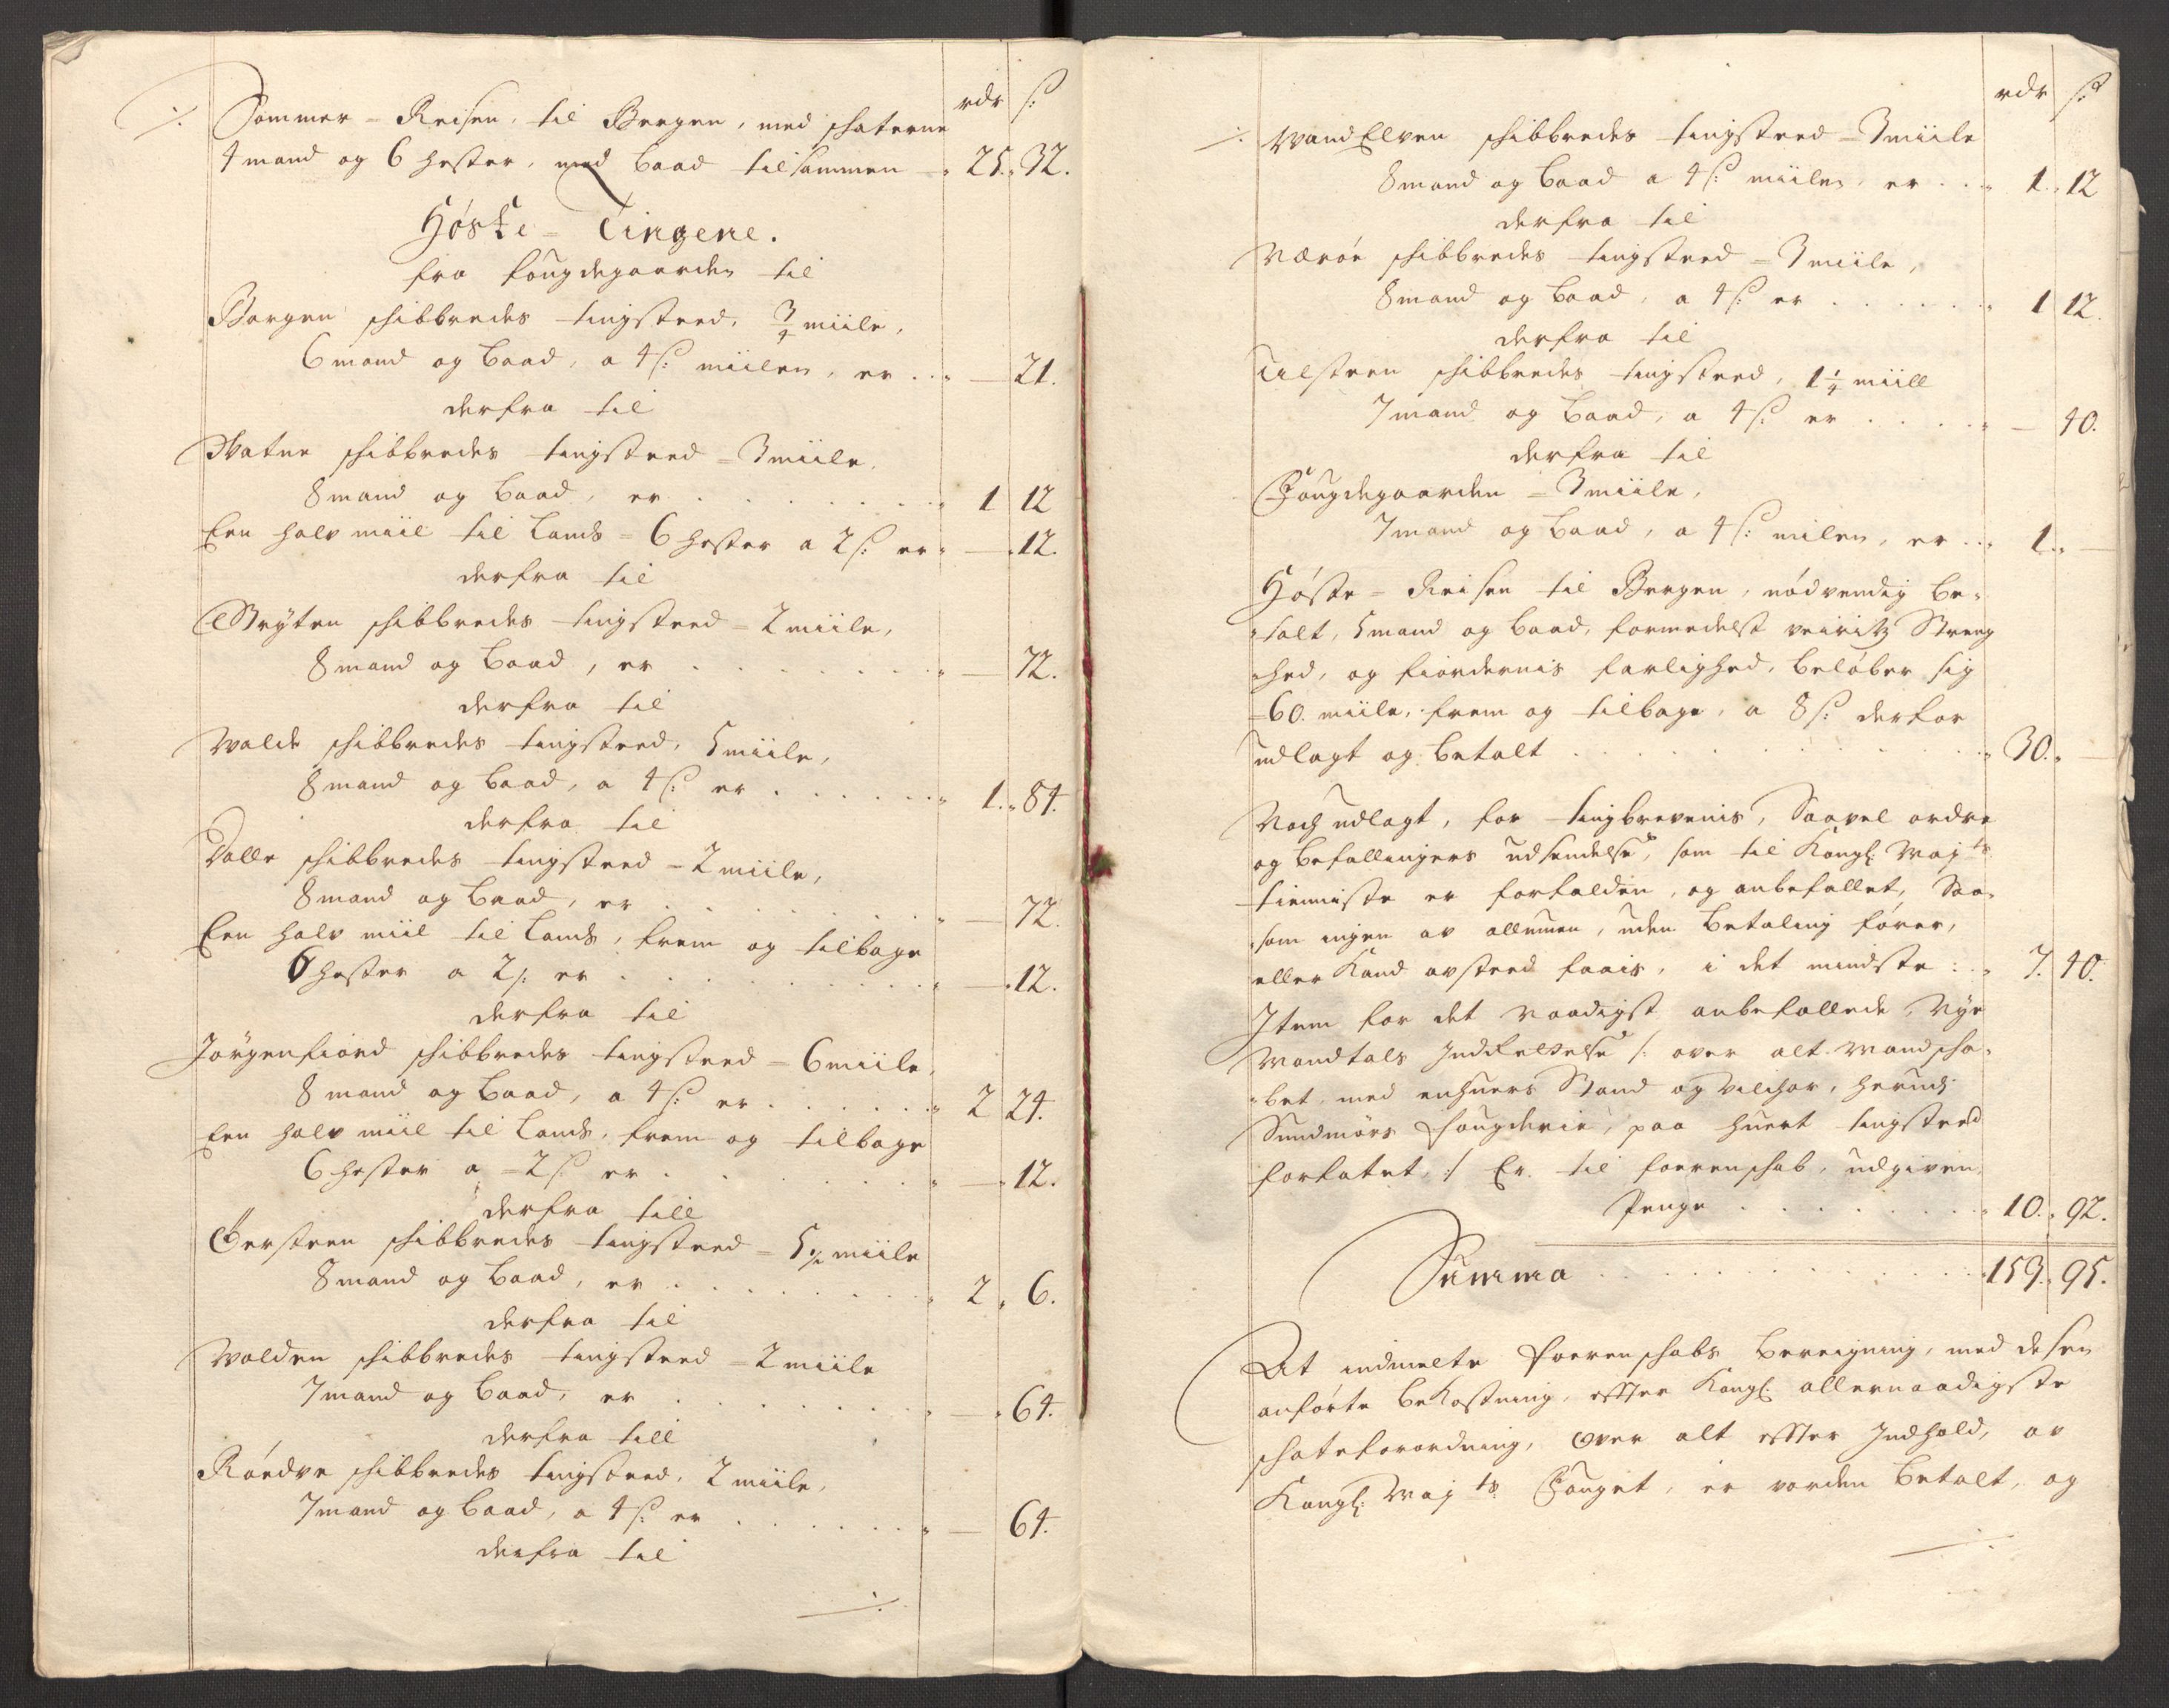 rdr ß:
Sommer = Reisen, til Bergen, med schaterne
4 mand og 6 hester, med baad tilsammen 25. 32.
Höste = Tingene.
fra fougdegaarden til
Borgen schibbredes tingsteed, 3/4 miile,
6 mand og baad, a 4 ß: miilen, er . . — 21.
derfra til
Watne schibbredes tingsteed = 3 miile,
8 mand og baad, er . . . 1 12
Een halv miil til Lands = 6 hester a 2 ß: er — 12.
derfra til
Gryten schibbredes tingsteed = 2 miile,
8 mand og baad, er . . . — 72.
derfra til
Wolde schibbredes tingsteed, 5 miile,
8 mand og baad, a 4 ß: er . . . 1. 84.
derfra til
Dalle schibbredes tingsteed = 2 miile,
8 mand og baad, er . . . — 72.
Een halv miil til Lands, frem og tilbage
6 hester a 2 ß: er . . . — 12.
derfra til
Jörgenfiord schibbredes tingsteed = 6 miile,
8 mand og baad, a 4 ß: er . . . 2 24.
Een halv miil til Lands, frem og tilbage
6 hester a = 2 ß er . . . — 12.
derfra till
Gersteen schibbredes tingsteed = 5 1/2 miile
8 mand og baad, er . . . 2 6.
derfra til
Wolden schibbredes tingsteed = 2 miile
7 mand og baad, er . . . — 64.
derfra till
Röedve schibbredes tingsteed, 2 miile,
7 mand og baad, a 4 ß: er . . . — 64.
derfra til
rdr ß:
WandElven schibbredes tingsteed = 3 miile
8 mand og baad a 4 ß: miilen, er . . . 1. 12
derfra til
Näröe schibbredes tingsteed = 3 miile,
8 mand og baad, a 4 ß: er . . . 1 12.
derfra til
Ulsteen schibbredes tingsteed, 1 1/4 miill
7 mand og baad, a 4 ß: er . . . — 40.
derfra til
Fougdegaarden = 3 miile,
7 mand og baad, a 4 ß: milen, er . . . 1. —
Höste = Reisen til Bergen, nödvendig be-
talt, 5 mand og baad, formedelst veiritz Streng
hed, og fiordernis farlighed, belöber sig
= 60. miile, frem og tilbage, a 8 ß: derfor
udlagt og betalt . . . 30. —
Noch udlagt, for tingbrevenis, Saavel ordre
og befallingers udsendelse, som til Kongl: May ts
tienniste er forfalden, og anbefallet, Saa-
som ingen av allmuen, uden betaling förer,
eller Kand avsteed faais, i det mindste . . 7. 40.
Item for det Naadigst anbefallede, Nye
Mandtals Indrettelse /: over alt Mandscha-
bet, med enhuers Stand og Vilchor, herudj
Sundmörs fougderie, paa huert tingsteed
forfatet, :/ Er til foerenschab, udgiven
Penge . . . 10. 92.
Summa . . . 159. 95.
At indmelte foerenschabs bereigning, med desen
anförte bekostning, effter Kongl: allernaadigste
schateforordning, over alt effter Indhold, av
Kongl: May ts Fouget, er vorden betalt, og